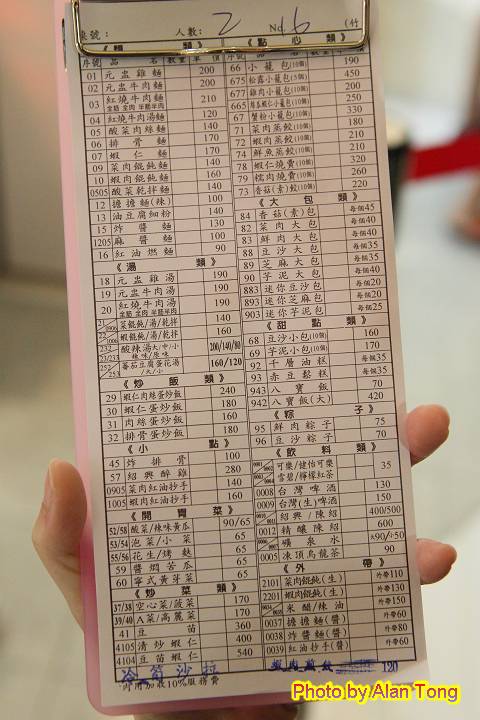 桌號： 人數：2 No. 6 (竹
《麵類》
序號 品名 數量 單價
01 元盅雞麵 200
02 元盅牛肉麵 200
03 紅燒牛肉麵 全筋 全肉 半筋半肉 210
04 紅燒牛肉湯麵 120
05 酸菜肉絲麵 140
06 排骨麵 170
07 蝦仁麵 170
09 菜肉餛飩麵 140
10 蝦肉餛飩麵 160
0505 酸菜乾拌麵 140
12 擔擔麵(辣) 100
13 油豆腐細粉 140
15 炸醬麵 130
1205 麻醬麵 100
16 紅油燃麵 90
《湯類》
18 元盅雞湯 190
19 元盅牛肉湯 190
20 紅燒牛肉湯 全筋 全肉 半筋半肉 190
21/1906 菜餛飩/湯/乾拌 140
22/1006 蝦餛飩/湯/乾拌 160
232 23/233 酸辣湯大/中/小 辣味/原味 200/140/80
252/253 番茄豆腐蛋花湯 /大/小 160/120
《炒飯類》
29 蝦仁肉絲蛋炒飯 240
30 蝦仁蛋炒飯 180
31 肉絲蛋炒飯 160
32 排骨蛋炒飯 180
《小點》
45 炸排骨 100
57 紹興醉雞 280
0905 菜肉紅油抄手 140
1005 蝦肉紅油抄手 160
《開胃菜》
52/58 酸菜/辣味黃瓜 90/65
53/54 泡菜/小菜 65
55/56 花生/烤麩 65
59 醬燜苦瓜 65
60 寧式黃芽菜 65
《炒菜類》
37/38 空心菜/菠菜 170
39/40 A菜/高麗菜 170
41 豆苗 360
4105 清炒蝦仁 400
4104 豆苗蝦仁 540
冷筍沙拉
*內用加收10%服務費
《點心類》
序號 數量 單價
66 小籠包(10個) 190
675 松露小籠包(5個) 450
677 雞肉小籠包(10個) 200
67 蟹粉小籠包(10個) 330
71 菜肉蒸餃(10個) 180
74 鮮魚蒸餃(10個) 210
78 蝦仁燒賣(10個) 320
79 糯肉燒賣(10個) 260
73 香菇(素)餃(10個) 220
《大包類》
84 香菇(素)包 每個45
82 菜肉大包 每個40
83 鮮肉大包 每個40
88 豆沙大包 每個35
89 芝麻大包 每個35
90 芋泥大包 每個40
883 迷你豆沙包 每個20
893 迷你芝麻包 每個20
903 迷你芋泥包 每個25
《甜點類》
68 豆沙小包(10個) 160
69 芋泥小包(10個) 170
92 千層油糕 每個35
93 赤豆鬆糕 每個35
943 八寶飯 70
942 八寶飯(大) 420
《粽子》
95 鮮肉粽子 75
96 豆沙粽子 70
《飲料類》
0001 0002 0003 0004 可樂/健怡可樂 雪碧/檸檬紅茶 35
0008 台灣啤酒 130
0009 台灣(生)啤酒 150
紹興/陳紹 400/500
0012 精釀陳紹 600
礦泉水 大90/小50
0005 凍頂烏龍茶 90
《外帶》
2101 菜肉餛飩(生) 外帶110
2201 蝦肉餛飩(生) 外帶130
米醋/辣油 外帶150
0037 擔擔麵(醬) 外帶60
0038 炸醬麵(醬) 外帶80
0039 紅油抄手(醬) 外帶60
蝦肉煎餃 120
Photo by Alan Tong